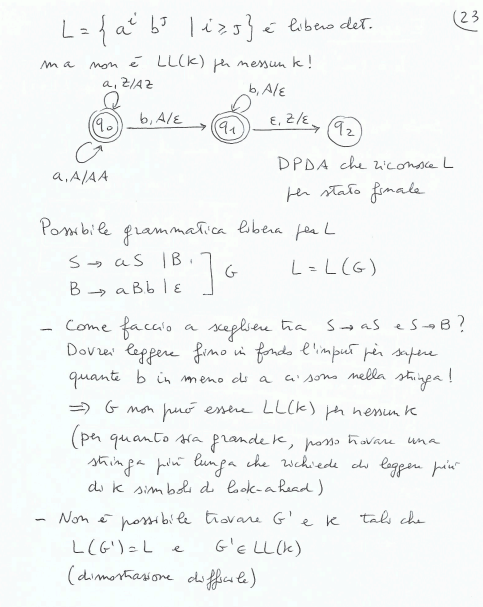 (23
L = { aⁱ bᴶ | i ≥ J } è libero det.
ma non è LL(k) per nessun k!
a, Z/AZ
b, A/ε
q₀
b, A/ε
q₁
ε, Z/ε
q₂
a, A/AA
DPDA che riconosce L
per stato finale
Possibile grammatica libera per L
S → aS | B
B → aBb | ε
] G
L = L(G)
- Come faccio a scegliere tra S → aS e S → B?
Dovrei leggere fino in fondo l'input per sapere
quante b in meno di a ci sono nella stringa!
⇒ G non può essere LL(k) per nessun k
(per quanto sia grande k, posso trovare una
stringa più lunga che richiede di leggere più
di k simboli di look-ahead)
- Non è possibile trovare G' e k tali che
L(G') = L e G' ∈ LL(k)
(dimostrazione difficile)